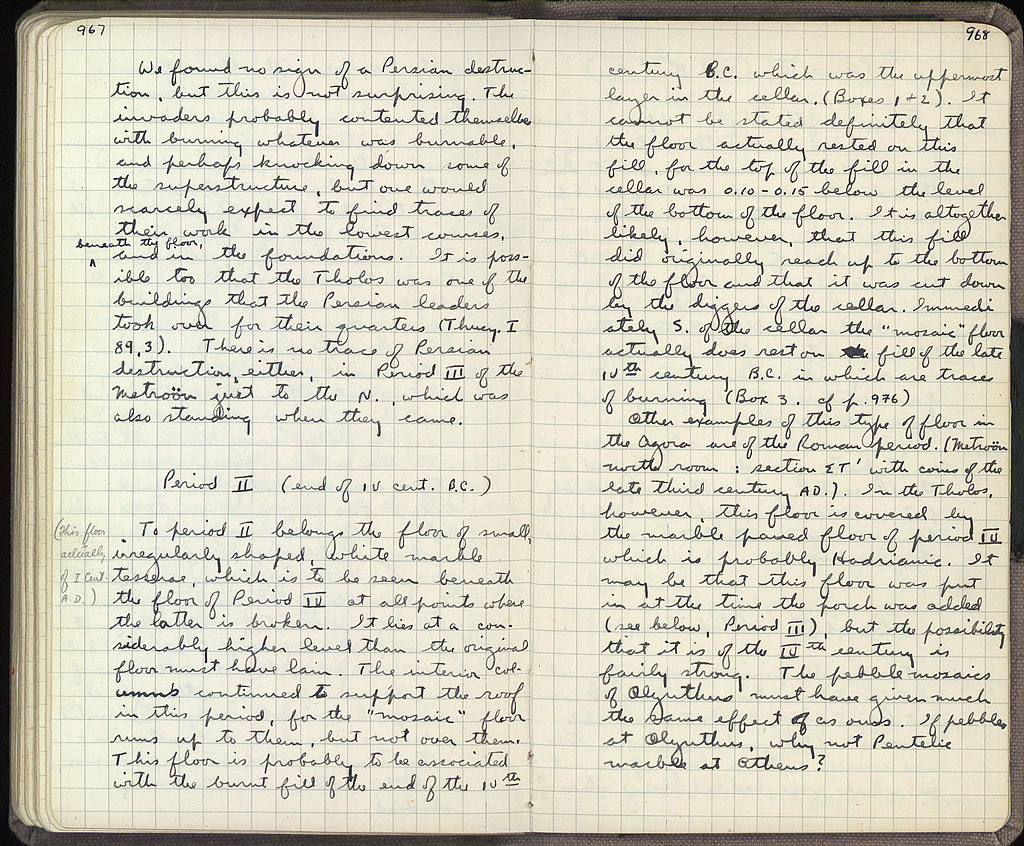 967
We found no sign of a Persian destruc-
tion, but this is not surprising. The
invaders probably contented themselves
with burning whatever was burnable,
and perhaps knocking down some of
the superstructure, but one would
scarcely expect to find traces of
their work in the lowest courses,
beneath the floor,
^ and in the foundations. It is poss-
ible too that the Tholos was one of the
buildings that the Persian leaders
took over for their quarters (Thucy. I
89,3). There is no trace of Persian
destruction, either, in Period III of the
Metroön just to the N., which was
also standing when they came.
Period II (end of IV cent. B.C.)
(this floor
actually
of I cent.
A.D.)
To period II belongs the floor of small,
irregularly shaped, white marble
tesserae, which is to be seen beneath
the floor of Period IV at all points where
the latter is broken. It lies at a con-
siderably higher level than the original
floor must have lain. The interior col-
umns continued to support the roof
in this period, for the "mosaic" floor
runs up to them, but not over them.
This floor is probably to be associated
with the burnt fill of the end of the IVth
968
century B.C. which was the uppermost
layer in the cellar. (Boxes 1+2). It
cannot be stated definitely that
the floor actually rested on this
fill, for the top of the fill in the
cellar was 0.10-0.15 below the level
of the bottom of the floor. It is altogether
likely, however, that this fill
did originally reach up to the bottom
of the floor and that it was cut down
by the diggers of the cellar. Immedi
ately S. of the cellar the "mosaic" floor
actually does rest on fill of the late
IVth century B.C. in which are traces
of burning (Box 3. cf p. 976)
Other examples of this type of floor in
the Agora are of the Roman period. (Metroön
north room : section ΣΤ' with coins of the
late third century A.D.). In the Tholos,
however, this floor is covered by
the marble paved floor of period IV
which is probably Hadrianic. It
may be that this floor was put
in at the time the porch was added
(see below, Period III), but the possibility
that it is of the IVth century is
fairly strong. The pebble mosaics
of Olynthus must have given much
the same effect as ours. If pebbles
at Olynthus, why not Pentelic
marble at Athens?